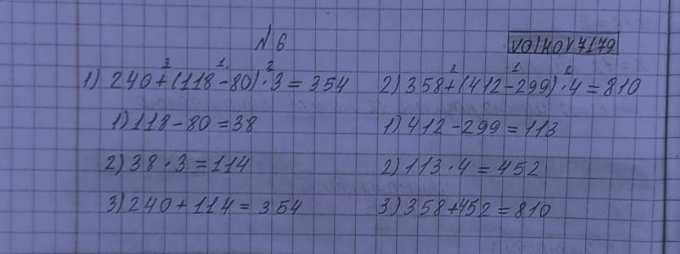 № 6
1) 240+(118-80)·3=354
1)118-80=38
2)38·3=114
3)240+114=354
2)358+(412-299)·4=810
1)412-299=113
2)113·4=452
3)358+452=810